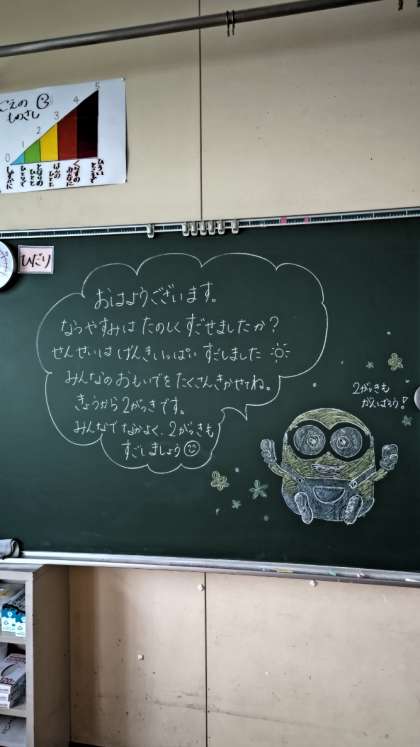 こえの
ものさし
0
1
2
3
4
5
ひだり
おはようございます。
なつやすみは たのしく すごせましたか?
せんせいは げんきいっぱい すごしました
みんなの おもいでを たくさんきかせてね。
きょうから 2がっきです。
みんなで なかよく、2がっきも
すごしましょう
2がっきも
がんばろう!